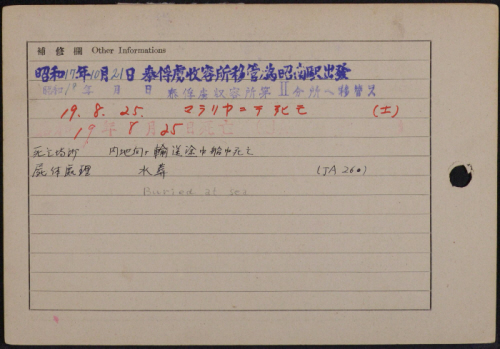 補修欄 Other Informations
昭和17年10月21日 泰俘虜收容所移管ノ爲昭南駅出發
昭和18年 月 日 泰俘虜収容所第II分所ヘ移管ス
19. 8. 25. マラリヤニテ死亡 (土)
19年8月25日死亡
死亡場所 内地向ケ輸送途中船中死亡
屍体處理 水葬 (JA 260)
Buried at sea